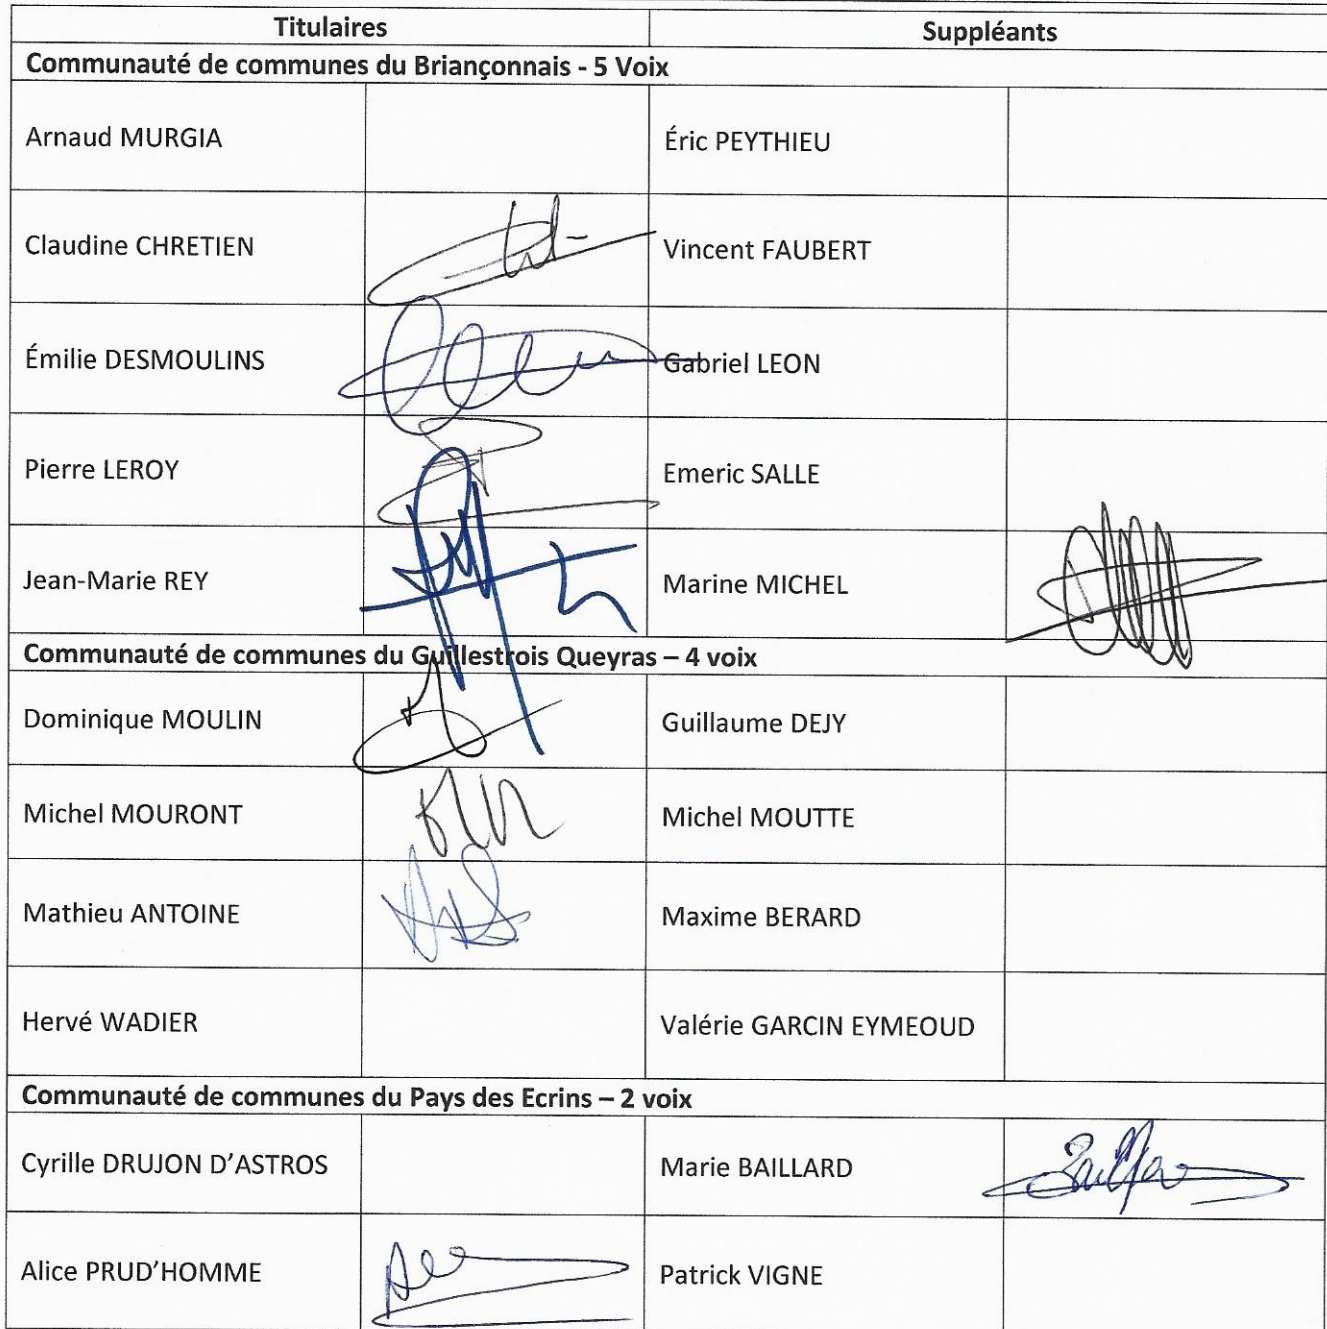 Titulaires Suppléants
Communauté de communes du Briançonnais - 5 Voix
Arnaud MURGIA Éric PEYTHIEU
Claudine CHRETIEN Vincent FAUBERT
Émilie DESMOULINS Gabriel LEON
Pierre LEROY Emeric SALLE
Jean-Marie REY Marine MICHEL
Communauté de communes du Guillestrois Queyras – 4 voix
Dominique MOULIN Guillaume DEJY
Michel MOURONT Michel MOUTTE
Mathieu ANTOINE Maxime BERARD
Hervé WADIER Valérie GARCIN EYMEOUD
Communauté de communes du Pays des Ecrins – 2 voix
Cyrille DRUJON D'ASTROS Marie BAILLARD
Alice PRUD'HOMME Patrick VIGNE